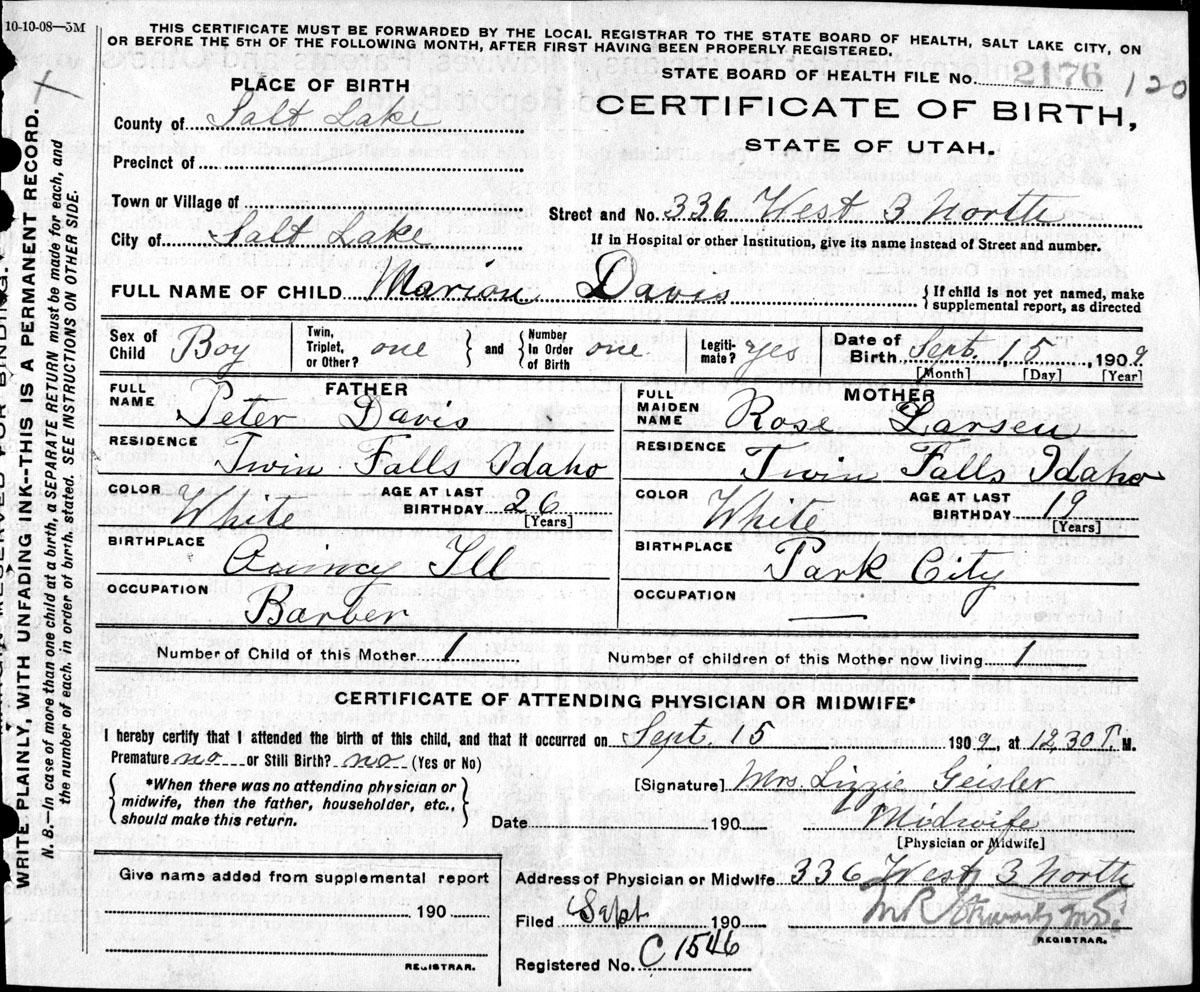 10-10-08—5M
THIS CERTIFICATE MUST BE FORWARDED BY THE LOCAL REGISTRAR TO THE STATE BOARD OF HEALTH, SALT LAKE CITY, ON
OR BEFORE THE 5TH OF THE FOLLOWING MONTH, AFTER FIRST HAVING BEEN PROPERLY REGISTERED.
STATE BOARD OF HEALTH FILE No. 2176 120
PLACE OF BIRTH
CERTIFICATE OF BIRTH,
STATE OF UTAH.
County of Salt Lake
Precinct of
Town or Village of
Street and No. 336 West 3 North
City of Salt Lake
If in Hospital or other Institution, give its name instead of Street and number.
FULL NAME OF CHILD Marion Davis
{If child is not yet named, make
supplemental report, as directed
Sex of Child Boy
Twin, Triplet, or Other? one
} and {
Number In Order of Birth one
Legiti-mate? yes
Date of Birth Sept. 15, 1909.
[Month] [Day] [Year]
FATHER
FULL NAME Peter Davis
RESIDENCE Twin Falls Idaho
COLOR White
AGE AT LAST BIRTHDAY 26
[Years]
BIRTHPLACE Quincy Ill
OCCUPATION Barber
MOTHER
FULL MAIDEN NAME Rose Larsen
RESIDENCE Twin Falls Idaho
COLOR White
AGE AT LAST BIRTHDAY 19
[Years]
BIRTHPLACE Park City
OCCUPATION —
Number of Child of this Mother 1
Number of children of this Mother now living 1
CERTIFICATE OF ATTENDING PHYSICIAN OR MIDWIFE*
I hereby certify that I attended the birth of this child, and that it occurred on Sept. 15 1909, at 12,30 P. M.
Premature no or Still Birth? no (Yes or No)
{*When there was no attending physician or
midwife, then the father, householder, etc.,
should make this return.}
[Signature] Mrs. Lizzie Geisler
Date 190 Midwife
[Physician or Midwife]
Give name added from supplemental report
190
REGISTRAR.
Address of Physician or Midwife 336 West 3 North
Filed Sept 190
REGISTRAR.
Registered No. C 1546
WRITE PLAINLY, WITH UNFADING INK--THIS IS A PERMANENT RECORD.
N. B.—In case of more than one child at a birth, a SEPARATE RETURN must be made for each, and
the number of each, in order of birth, stated. SEE INSTRUCTIONS ON OTHER SIDE.